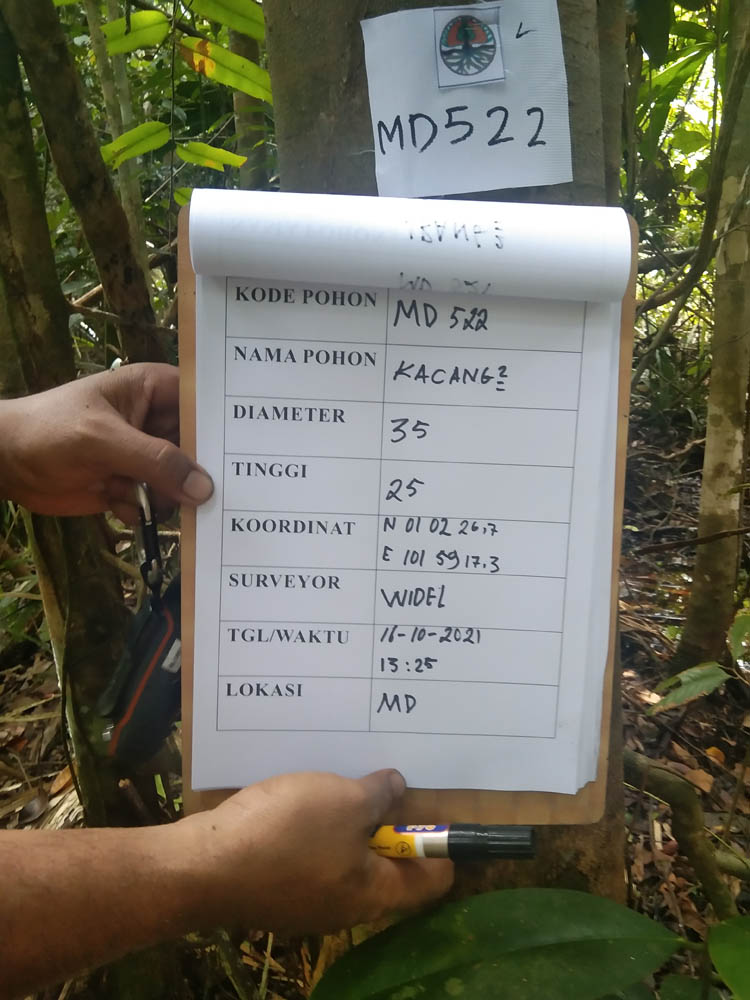 MD522
KODE POHON MD 522
NAMA POHON KACANG²
DIAMETER 35
TINGGI 25
KOORDINAT N 01 02 26,7
E 101 59 17.3
SURVEYOR WIDEL
TGL/WAKTU 16-10-2021
13:25
LOKASI MD